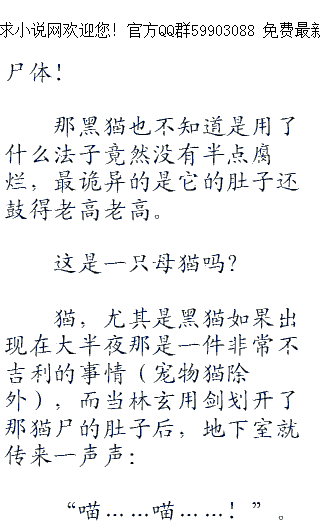 求小说网欢迎您！官方QQ群59903088 免费最新
尸体！
那黑猫也不知道是用了
什么法子竟然没有半点腐
烂，最诡异的是它的肚子还
鼓得老高老高。
这是一只母猫吗？
猫，尤其是黑猫如果出
现在大半夜那是一件非常不
吉利的事情（宠物猫除
外），而当林玄用剑划开了
那猫尸的肚子后，地下室就
传来一声声：
“喵……喵……！”。